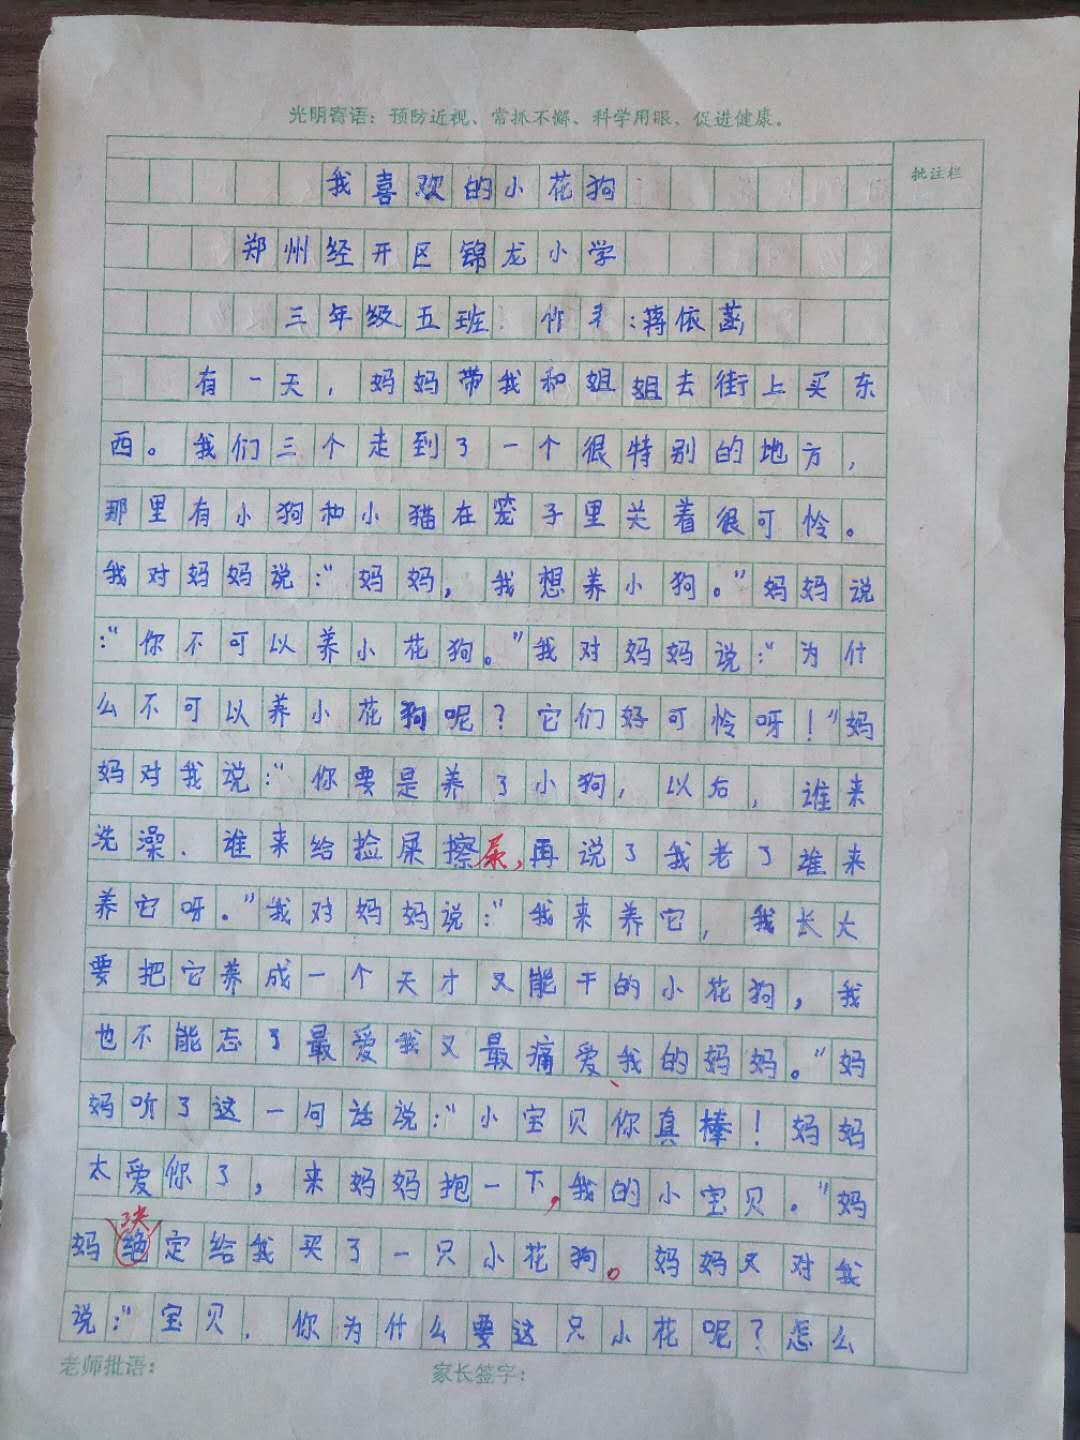 光明寄语：预防近视、常抓不懈、科学用眼、促进健康。
批注栏
我喜欢的小花狗
郑州经开区锦龙小学
三年级五班 作者:蒋依菡
有一天，妈妈带我和姐姐去街上买东
西。我们三个走到了一个很特别的地方，
那里有小狗和小猫在笼子里关着很可怜。
我对妈妈说:“妈妈，我想养小狗。”妈妈说
:“你不可以养小花狗。”我对妈妈说:“为什
么不可以养小花狗呢？它们好可怜呀！”妈
妈对我说:“你要是养了小狗，以后，谁来
洗澡、谁来给捡屎擦尿，再说了我老了谁来
养它呀。”我对妈妈说:“我来养它，我长大
要把它养成一个天才又能干的小花狗，我
也不能忘了最爱我又最痛爱我的妈妈。”妈
妈听了这一句话说:“小宝贝你真棒！妈妈
太爱你了，来妈妈抱一下，我的小宝贝。”妈
决
妈绝定给我买了一只小花狗。妈妈又对我
说:“宝贝、你为什么要这只小花呢？怎么
老师批语：
家长签字：